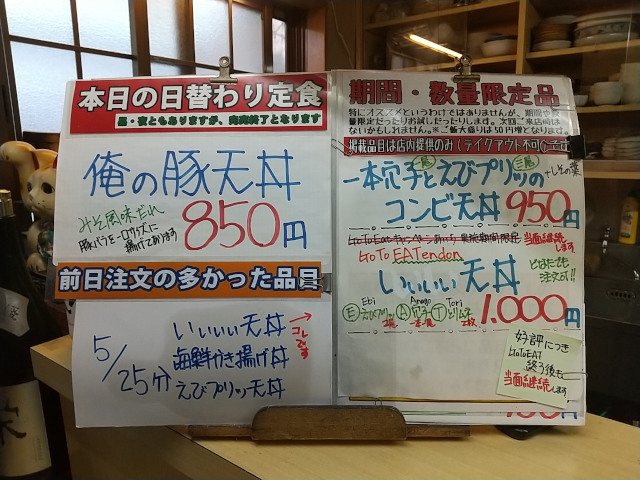 本日の日替わり定食
昼・夜ともありますが、売完終了となります
俺の豚天丼
みそ風味だれ
豚バラをロクサスに
揚げてあります
850円
前日注文の多かった品目
5/25分
いいいい天丼
→コレです
海鮮かき揚げ丼
えびプリッツ天丼
期間・数量限定品
特にオススメというわけではありませんが、期間や
量限定だったりお試しだったりします。次回ご来店時は
ないかもしれません。※ご飯大盛りは50円増となります。
掲載品目は店内提供のみ(テイクアウト不可)
一本穴子とえびプリッツの +しその葉
コンビ天丼 950円
GoToEatキャンペーンあいち 実施期間限定 当面継続します
GoTo EATendon
いいいい天丼
どなたでも
注文可!!
Ebi Anago Tori
Ⓔえびプリッツ2尾 Ⓐ穴子一本 Ⓣとりムネ2枚
1,000円
好評につき
GoToEAT
終了後も
当面継続します